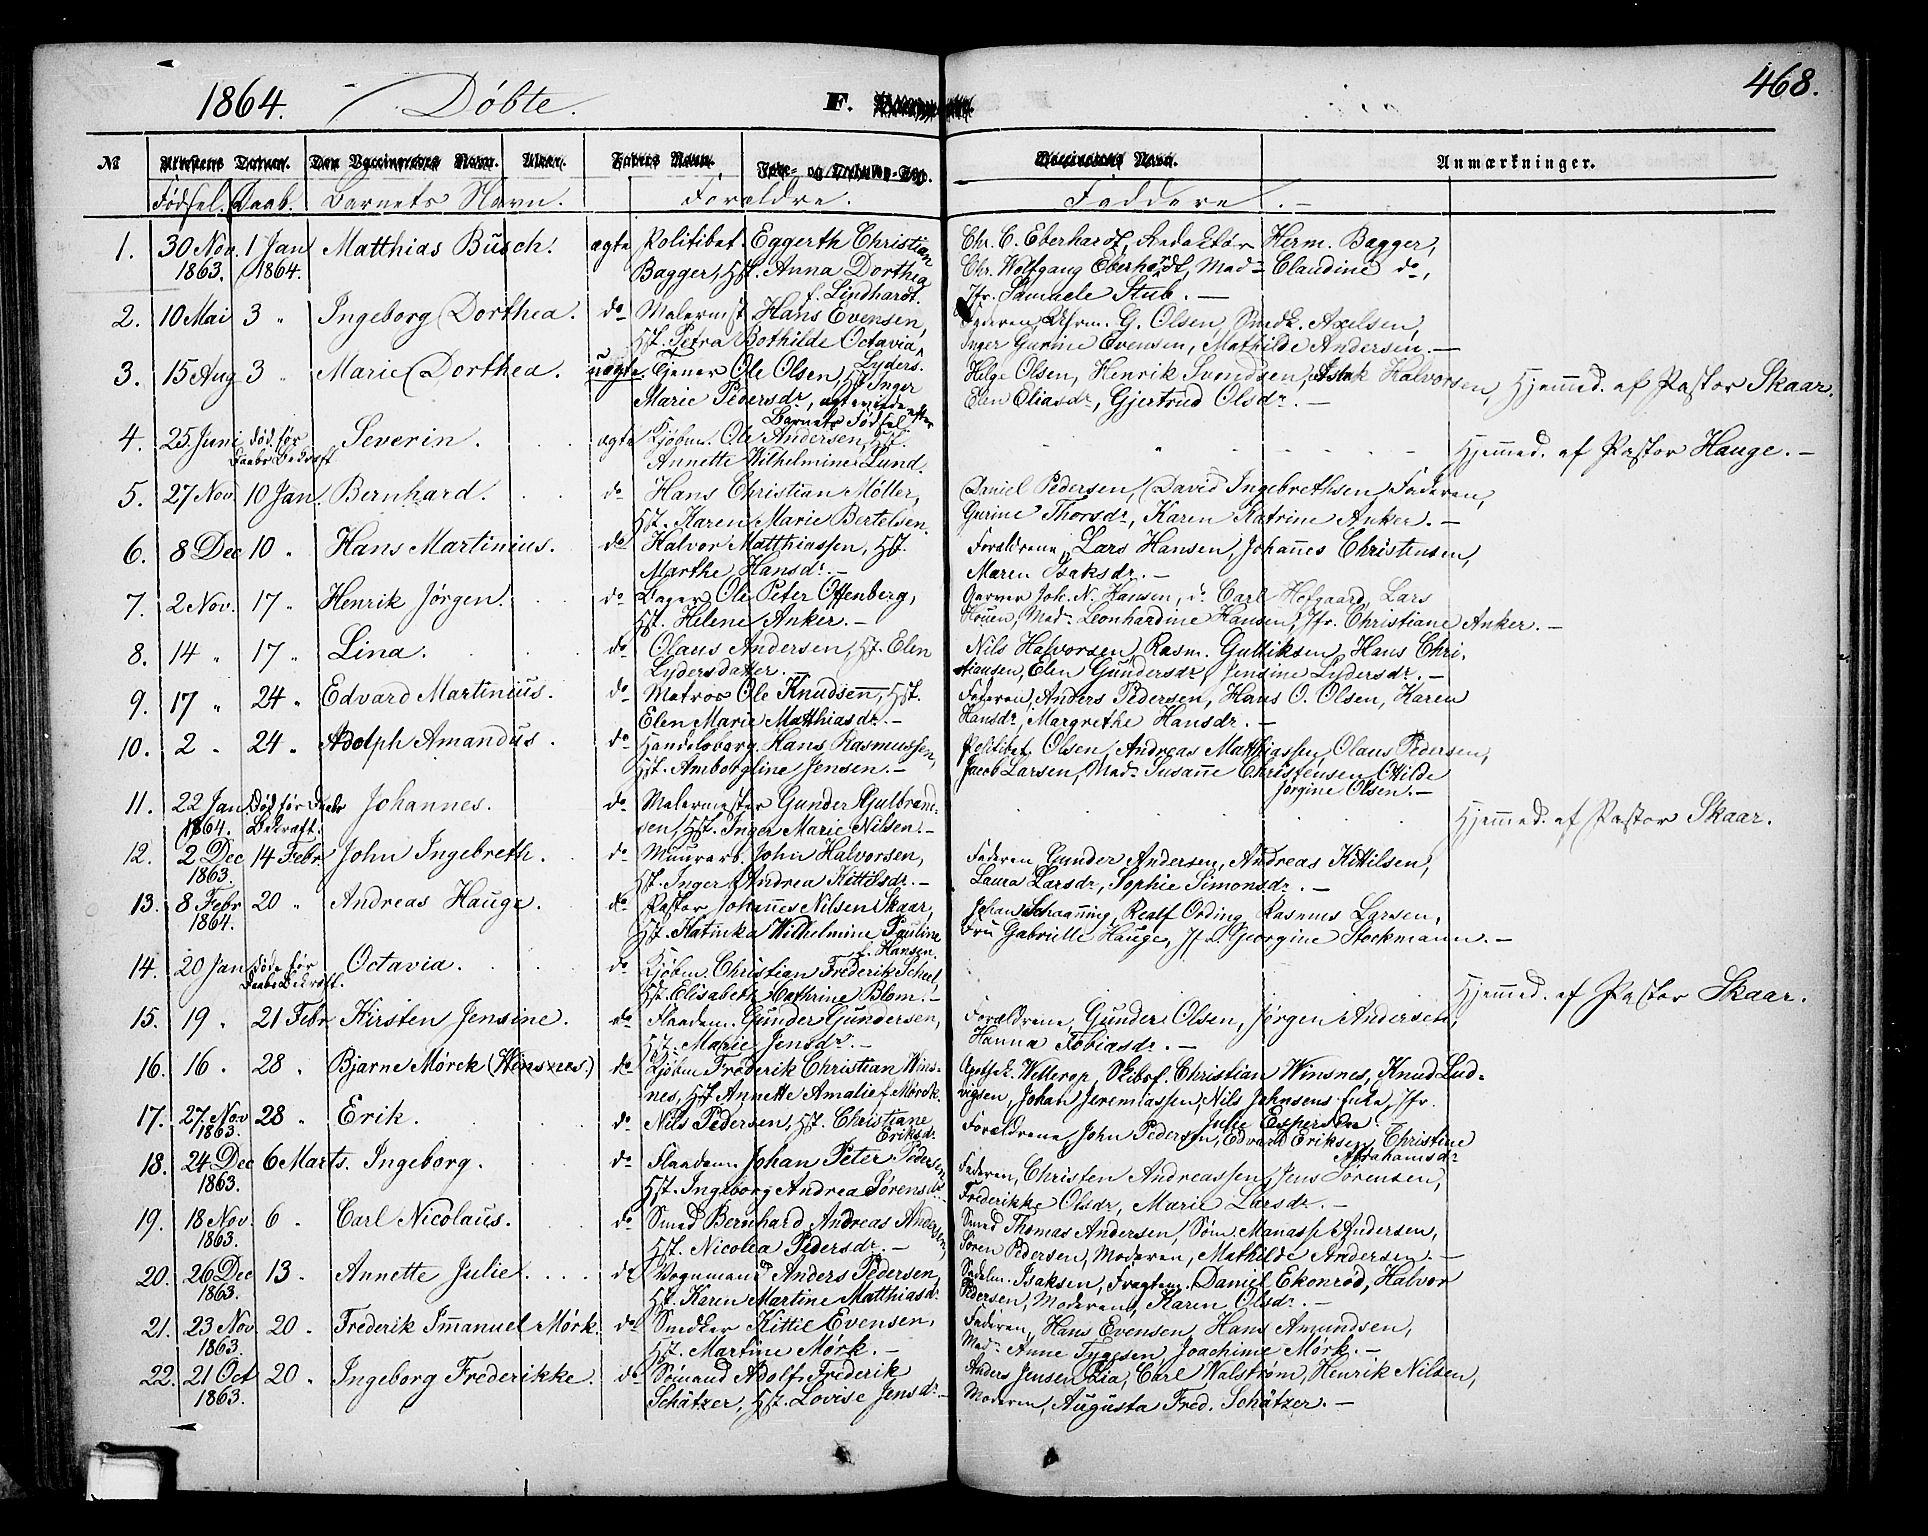 1864. Døbte. F. 468.
No Anmærkninger.
Fødsel. Daab. Barnets Navn. Forældre. Faddere.
1. 30 Nov. 1863. 1 Jan 1864. Matthias Busch. ægte Politibet. Eggerth Christian
Bagger, Hst. Anna Dorthea
f. Lindhardt.
Chr. C. Eberhardt, Redaktør Herm. Bagger,
Chr. Wolfgang Eberhardt, Mad. Claudine do,
Jfr. Samuele Stub. —
2. 10 Mai 3 " Ingeborg Dorthea. do Malermst. Hans Evensen,
Hst. Petra Bothilde Octavia
Lyders.
Faderen, G. Olsen, Smedk. Axelsen,
Inger Gurine Evensen, Mathilde Andersen. —
3. 15 Aug 3 " Marie Dorthea. uægte. Tjener Ole Olsen, Hst. Inger
Marie Pedersdr, ægteviede efter
Barnets Fødsel
Helge Olsen, Henrik Svendsen, Aslak Halvorsen,
Elen Eliasdr, Gjertrud Olsdr. —
Hjemmed. af Pastor Skaar.
4. 25 Juni død før Daabs Bekræft. Severin. ægte Kjøbm. Ole Andersen, Hst.
Annette Wilhelmine Lund.
Hjemmed. af Pastor Hauge. —
5. 27 Nov. 10 Jan. Bernhard. do Hans Christian Møller,
Hst. Karen Marie Bertelsen.
Daniel Pedersen, David Ingebrethsen, Faderen,
Gurine Thorsdr, Karen Katrine Anker. —
6. 8 Dec 10 " Hans Martinius. do Halvor Matthiassen, Hst.
Marthe Hansdr. —
Forældrene, Lars Hansen, Johannes Christensen,
Maren Isaksdr. —
7. 2 Nov. 17 " Henrik Jørgen. do Bager Ole Peter Offenberg,
Hst. Helene Anker. —
Garver Joh. N. Hansen, do Carl Hofgaard, Lars
Houen, Mad. Leonhardine Hansen, Jfr. Christiane Anker. —
8. 14 " 17 " Lina. do Olaus Andersen, Hst. Elen
Lydersdatter. —
Nils Halvorsen, Rasm. Gulliksen, Hans Chri-
stiansen, Elen Gundersdr, Jensine Lydersdr. —
9. 17 " 24 " Edvard Martinius. do Matros Ole Knudsen, Hst.
Elen Marie Matthiasdr. —
Faderen, Anders Pedersen, Hans O. Olsen, Karen
Hansdr, Margrethe Hansdr. —
10. 2 " 24 " Adolph Amandus. do Handelsborg. Hans Rasmussen,
Hst. Amborgline Jensen. —
Politibet. Olsen, Andreas Matthiassen, Olaus Pedersen,
Jacob Larsen, Mad. Susanne Christensen, Otilde
Jørgine Olsen. —
11. 22 Jan 1864. Død før Daabs Bekræft. Johannes. do Malermester Gunder Gulbrand-
sen, Hst. Inger Marie Nilsen. —
Hjemmed. af Pastor Skaar.
12. 2 Dec 1863. 14 Febr. John Ingebreth. do Muurarb. John Halvorsen,
Hst. Inger Andrea Kittilsdr. —
Faderen, Gunder Andersen, Andreas Kittilsen,
Laura Larsdr, Sophie Simonsdr. —
13. 8 Febr 1864. 20 " Andreas Hauge. do Pastor Johannes Nilsen Skaar,
Hst. Katinka Wilhelmine Pauline
f. Hansen.
Johan Schaanning, Realf Ording, Rasmus Larsen,
Fru Gabrielle Hauge, Jfr. Georgine Stockmann. —
14. 20 Jan døde før Daabs Bekræft. Octavia. do Kjøbm. Christian Frederik Scheel,
Hst. Elisabeth Cathrine Blom. —
Hjemmed. af Pastor Skaar.
15. 19 " 21 Febr Kirsten Jensine. do Flaadem. Gunder Gundersen,
Hst. Marie Jensdr. —
Forældrene, Gunder Olsen, Jørgen Andersen,
Hanna Tobiasdr. —
16. 16 " 28 " Bjarne Mørck (Winsnes.) do Kjøbm Frederik Christian Wins-
nes, Hst Annette Amalie f. Mørck.
Apothek. Wetterop, Skibsf. Christian Winsnes, Knud Lud-
vigsen, Johan Jeremiassen, Nils Jahnsens Enke, Jfr.
Julie Espersen.
17. 27 Nov 1863. 28 " Erik. do Nils Pedersen, Hst. Christiane
Eriksdr.
Forældrene, John Pedersen, Edvard Eriksen, Christine
Abrahamsdr
18. 24 Dec 1863. 6 Marts. Ingeborg. do Flaadem. Johan Peter Pedersen,
Hst. Ingeborg Andrea Sørensdr.
Faderen, Christen Andreassen, Jens Sørensen,
Frederikke Olsdr, Marie Larsdr. —
19. 18 Nov. 1863. 6 " Carl Nicolaus. do Smed Bernhard Andreas Andersen,
Hst. Nicolea Pedersdr. —
Smed Thomas Andersen, Søm. Manasse Andersen,
Søren Pedersen, Moderen, Mathilde Andersen. —
20. 26 Dec 1863. 13 " Annette Julie. do Vognmand Anders Pedersen,
Hst. Karen Martine Matthiasdr.
Sadelm. Isaksen, Fragtem. Daniel Ekonrød, Halvor
Pedersen, Moderen, Karen Olsdr. —
21. 23 Nov 1863. 20 " Frederik Immanuel Mørk. do Snedker Kittil Evensen,
Hst. Martine Mørk. —
Faderen, Hans Evensen, Hans Amundsen,
Mad. Anne Tygesen, Joachime Mørk. —
22. 21 Oct 1863. 20 " Ingeborg Frederikke. do Sømand Adolf Frederik
Schätzer, Hst. Lovise Jensdr. —
Anders Jensen Lia, Carl Walstrøm, Henrik Nilsen,
Moderen, Augusta Fred. Schätzer. —